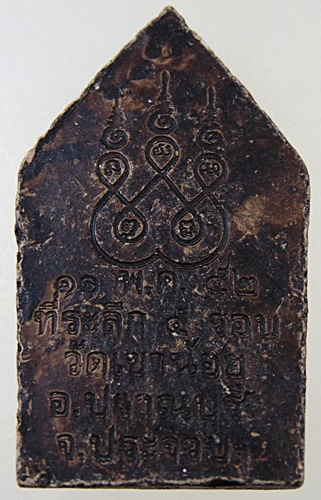 ๑๑ พ.ค. ๕๒
ที่ระลึก ๕ รอบ
วัดเขาน้อย
อ.ปราณบุรี
จ.ประจวบฯ